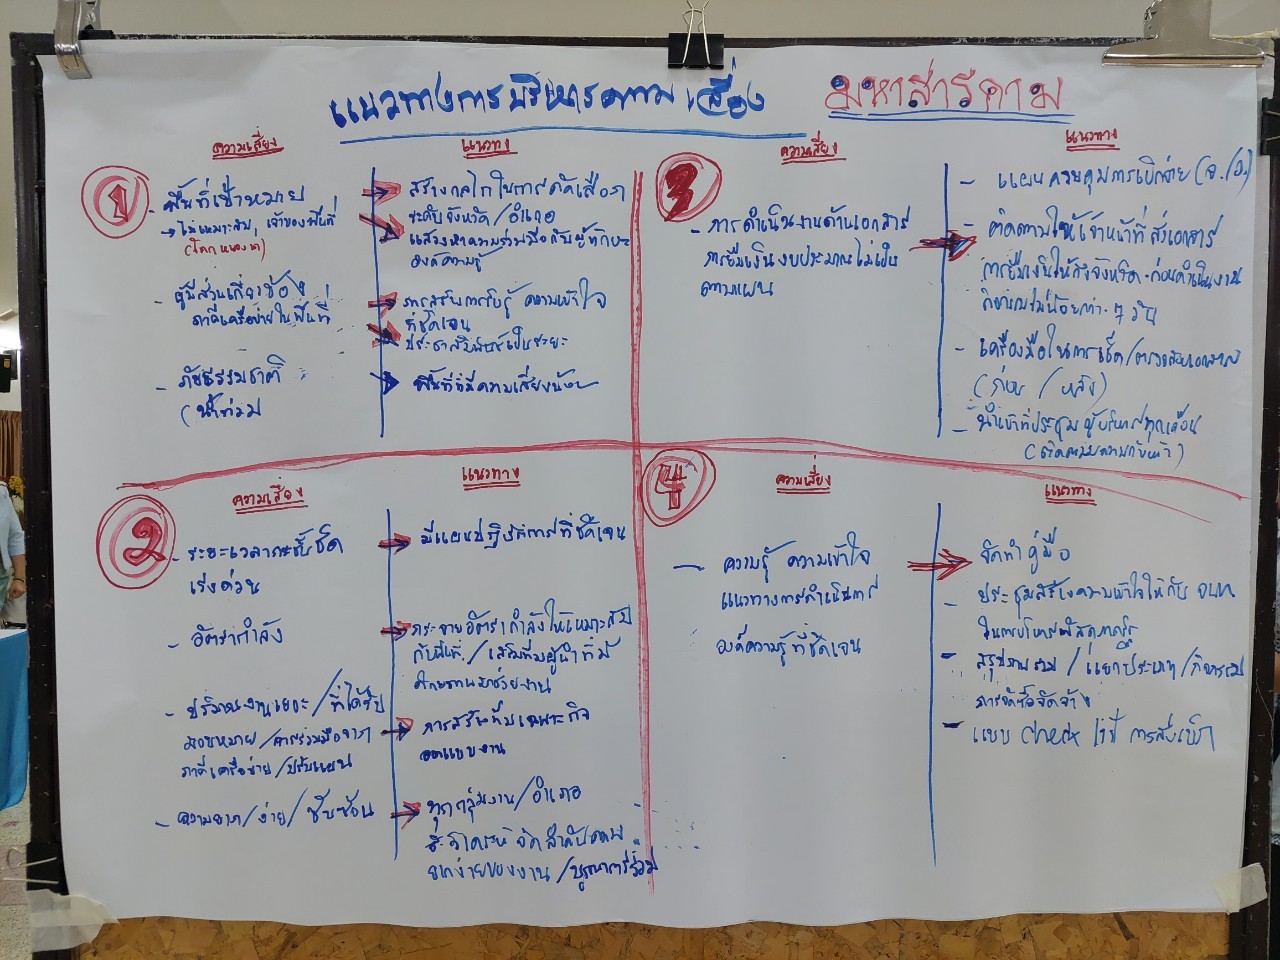 แนวทางการบริหารความเสี่ยง มหาสารคาม
1
ความเสี่ยง
- พื้นที่เป้าหมาย
→ ไม่เหมาะสม, เจ้าของพื้นที่
(โคก หนองนา)
- ผู้มีส่วนเกี่ยวข้อง
ภาคีเครือข่ายในพื้นที่
- ภัยธรรมชาติ
(น้ำท่วม
แนวทาง
สร้างกลไกในการคัดเลือก
ระดับจังหวัด/อำเภอ
แสวงหาความร่วมมือกับผู้ทักษะ
องค์ความรู้
การสร้างการรับรู้ ความเข้าใจ
ที่ชัดเจน
ประชาสัมพันธ์เป็นระยะ
พื้นที่ที่มีความเสี่ยงน้อย
2
ความเสี่ยง
- ระยะเวลากระชั้นชิด
เร่งด่วน
- อัตรากำลัง
- ปริมาณงานเยอะ/ที่ได้รับ
มอบหมาย/ความร่วมมือจาก
ภาคีเครือข่าย/ปรับแผน
- ความยาก/ง่าย/ซับซ้อน
แนวทาง
มีแผนปฏิบัติการที่ชัดเจน
กระจายอัตรากำลังให้เหมาะสม
กับพื้นที่/เสริมทีมผู้นำที่มี
ศักยภาพมาช่วยงาน
การสร้างทีมเฉพาะกิจ
ออกแบบงาน
ทุกกลุ่มงาน/อำเภอ
วิเคราะห์ จัดลำดับความ
ยากง่ายของงาน/บูรณาการร่วม
3
ความเสี่ยง
- การดำเนินงานด้านเอกสาร
การยืมเงินงบประมาณไม่เป็น
ตามแผน
แนวทาง
- แผนควบคุมการเบิกจ่าย (จ./อ.)
- ติดตามให้เจ้าหน้าที่ส่งเอกสาร
การยืมเงินให้ถึงจังหวัด ก่อนดำเนินงาน
กิจกรรมไม่น้อยกว่า 7 วัน
- เครื่องมือในการเช็ค/ตรวจสอบเอกสาร
(ก่อน / หลัง)
- นำเข้าที่ประชุมผู้บริหารทุกเดือน
(ติดตามความก้าวหน้า)
4
ความเสี่ยง
- ความรู้ ความเข้าใจ
แนวทางการดำเนินการ
องค์ความรู้ที่ชัดเจน
แนวทาง
- จัดทำคู่มือ
- ประชุมสร้างความเข้าใจให้กับ จนท.
ในการบริหารพัสดุภาครัฐ
- สรุปภาพรวม/แยกประเภท/กิจกรรม
การจัดซื้อจัดจ้าง
- แบบ check list การส่งเบิก